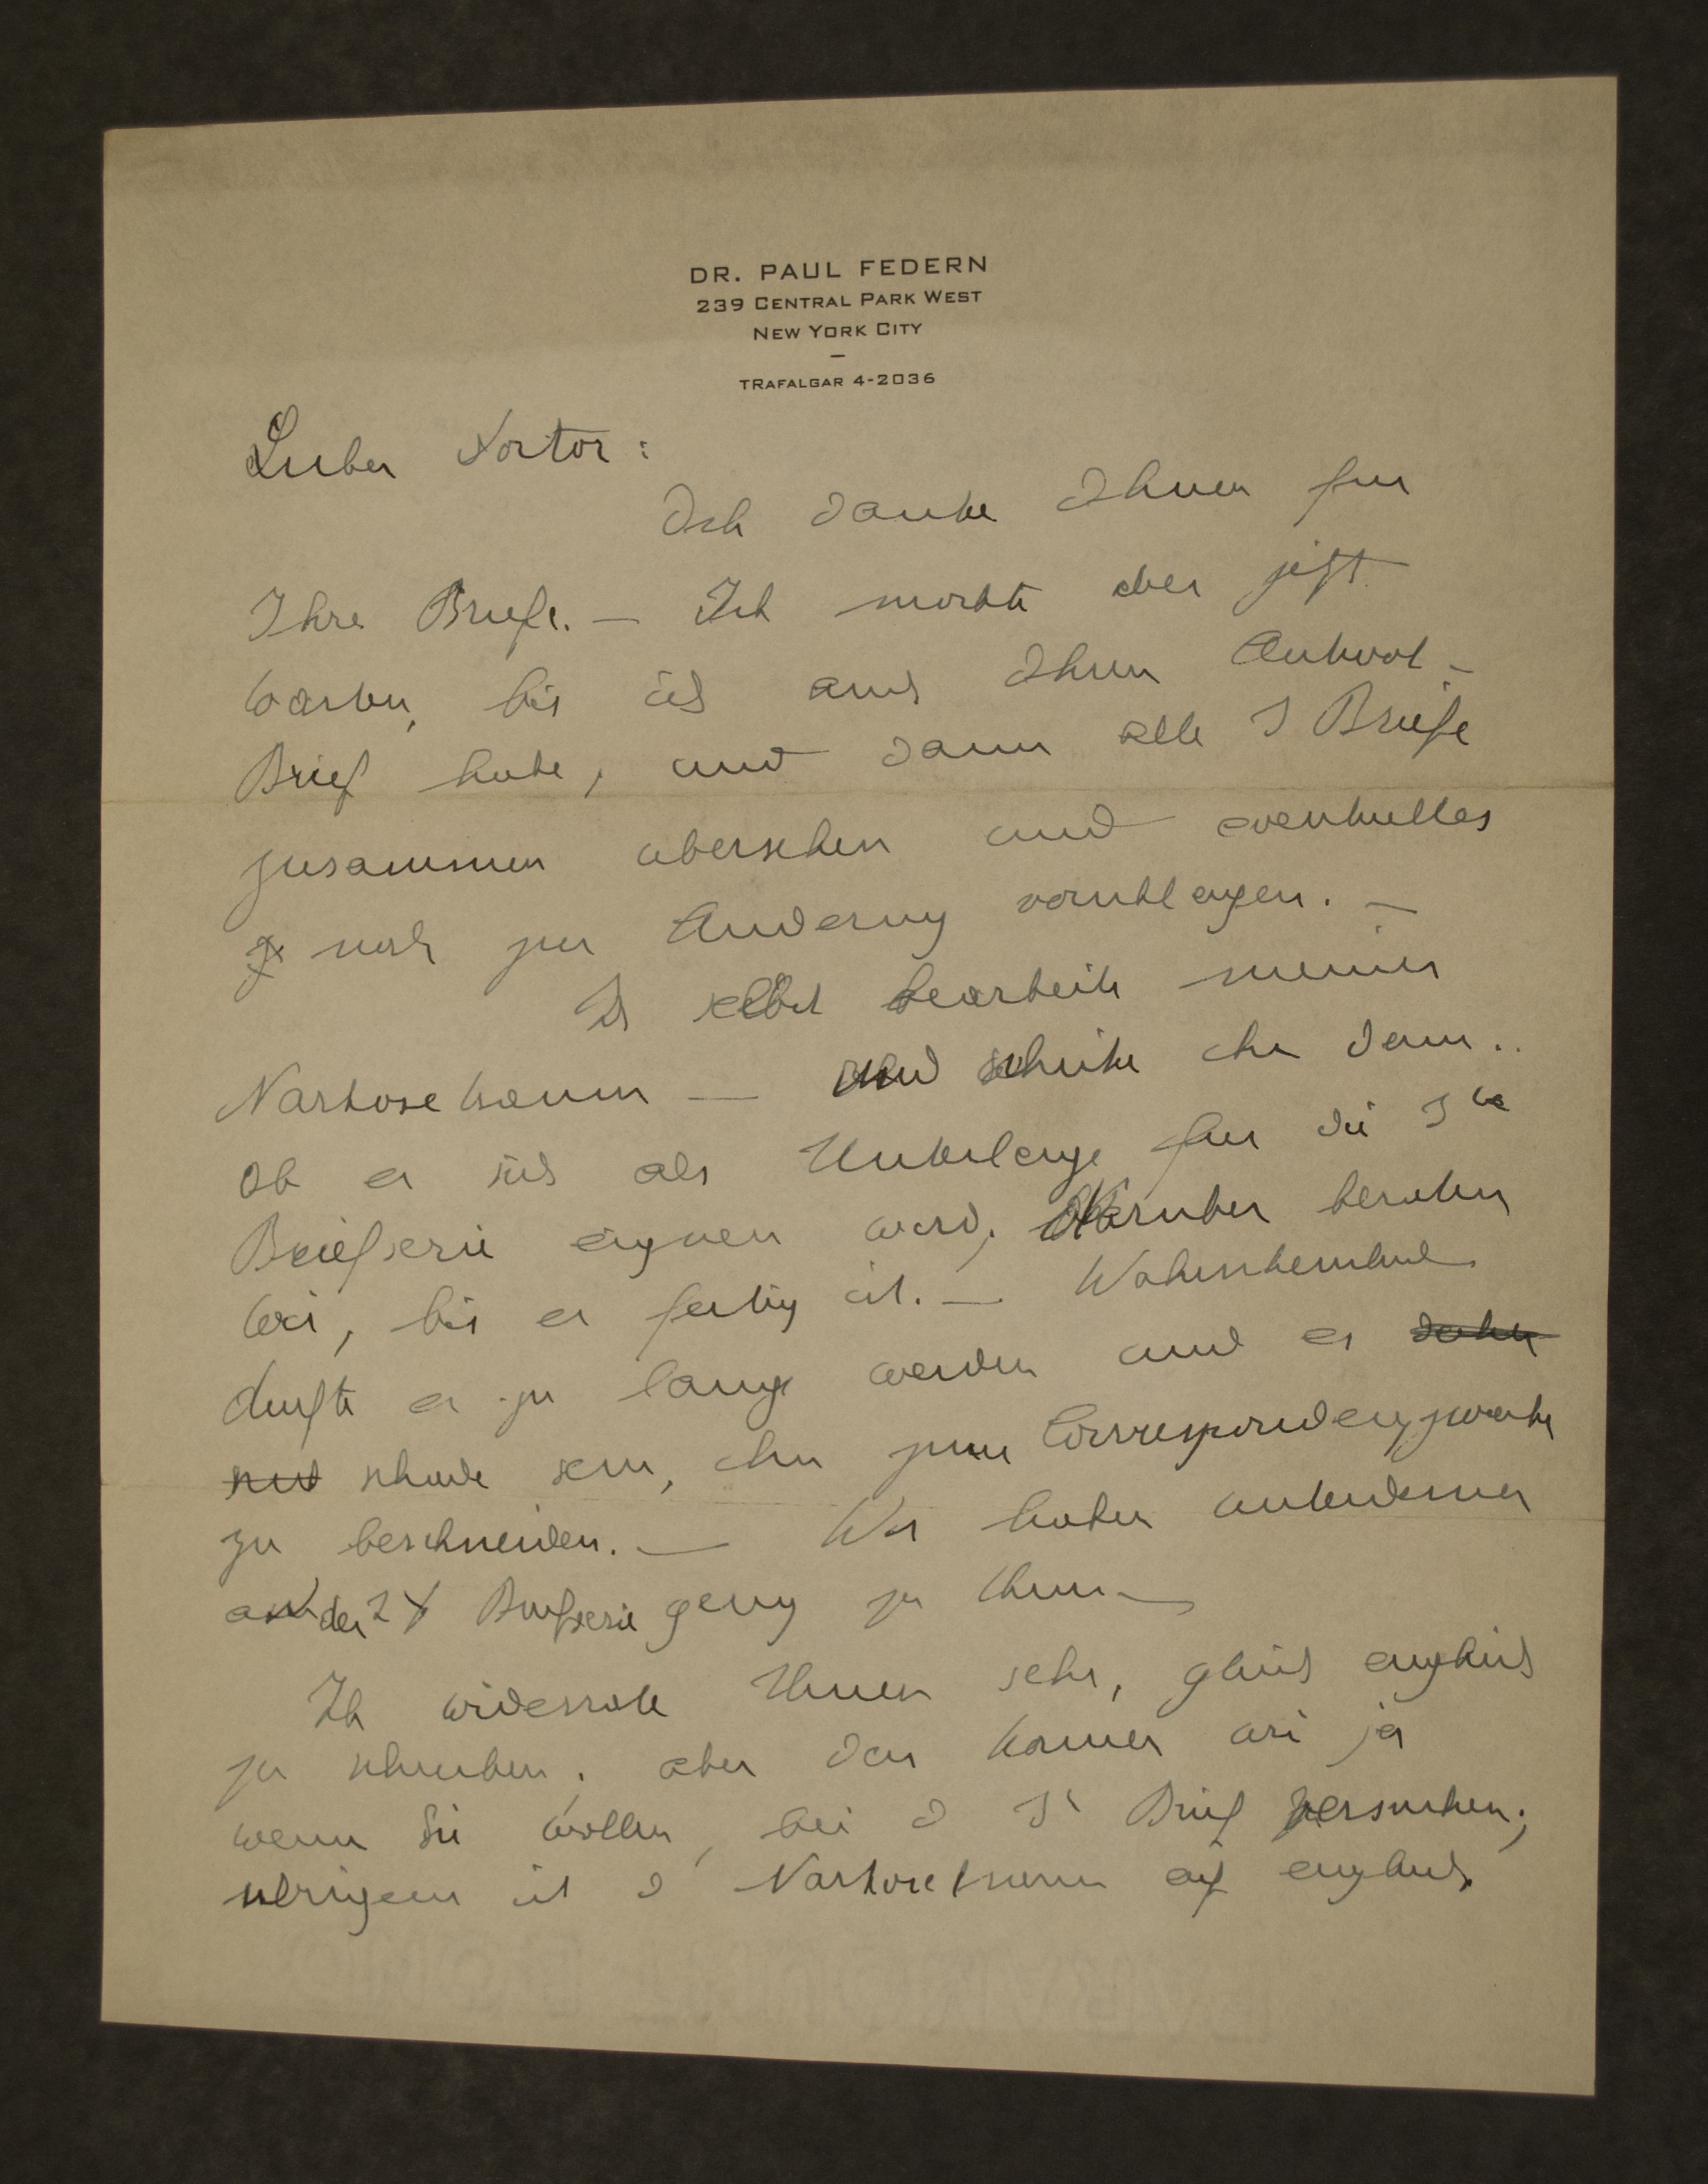 DR. PAUL FEDERN
239 CENTRAL PARK WEST
NEW YORK CITY
—
TRAFALGAR 4-2036
Lieber Doctor:
Ich danke Ihnen fur
Ihre Briefe. — Ich mochte aber jetzt
warten, bis ich auch Ihren Antwort-
Brief habe, und dann alle 3 Briefe
zusammen ubersehen und eventuelles
noch zur Anderung vorschlagen. —
Ich selbst bearbeite meinen
Narkosetraum — und schicke ihn dann..
Ob er sich als Unterlage fur die 3te
Briefserie eignen wird, daruber beraten
wir, bis er fertig ist. — Wahrscheinlich
durfte er zu lang werden und es
schade sein, ihn zum Correspondenzzwecke
zu beschneiden. — Wir haben unterdessen
an der 2 Briefserie genug zu thun —
Ich widerrate Ihnen sehr, gleich englisch
zu schreiben; aber das konnen wir ja
wenn Sie wollen, bei d 3 Brief versuchen;
ubrigens ist d Narkosetraum auf englisch.